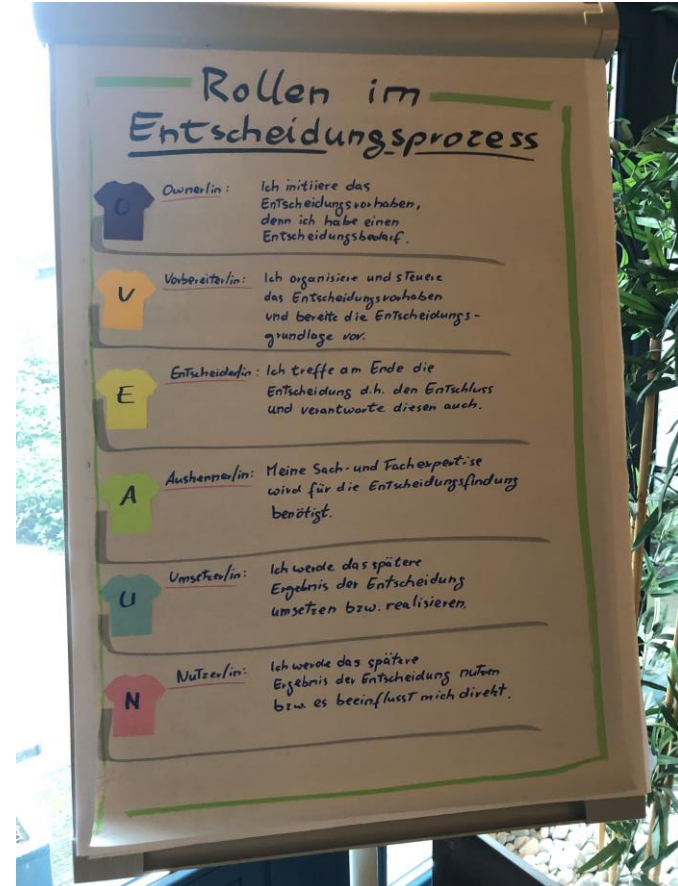 Rollen im
Entscheidungsprozess
O
Owner/in: Ich initiiere das
Entscheidungsvorhaben,
denn ich habe einen
Entscheidungsbedarf.
V
Vorbereiter/in: Ich organisiere und steuere
das Entscheidungsvorhaben
und bereite die Entscheidungs-
grundlage vor.
E
Entscheider/in: Ich treffe am Ende die
Entscheidung d.h. den Entschluss
und verantworte diesen auch.
A
Auskenner/in: Meine Sach- und Fachexpertise
wird für die Entscheidungsfindung
benötigt.
U
Umsetzer/in: Ich werde das spätere
Ergebnis der Entscheidung
umsetzen bzw. realisieren.
N
Nutzer/in: Ich werde das spätere
Ergebnis der Entscheidung nutzen
bzw. es beeinflusst mich direkt.